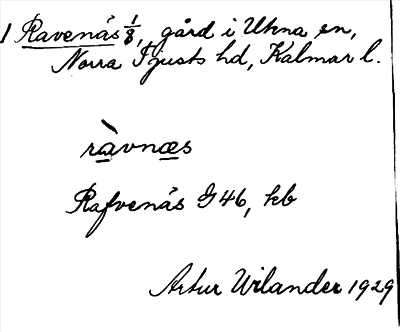 1 Ravenäs 1/8, gård i Ukna sn,
Norra Tjusts hd, Kalmar l.
ràvnæs
Rafvenäs G46, kb
Artur Wilander 1929